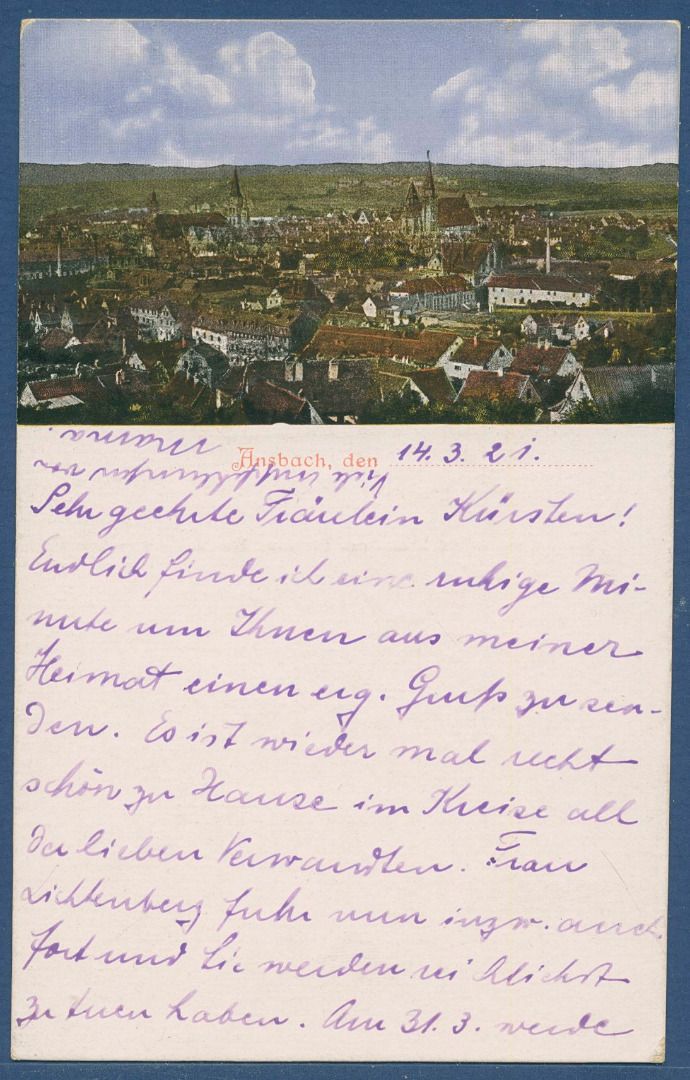 Ansbach, den 14. 3. 21.
Sehr geehrte Fräulein Kürsten!
Endlich finde ich eine ruhige Mi-
nute um Ihnen aus meiner
Heimat einen erg. Gruß zu sen-
den. Es ist wieder mal recht
schön zu Hause im Kreise all
der lieben Verwandten. Frau
Lichtenberg fuhr nun inzw. auch
fort und Sie werden reichlichst
zu tuen haben. Am 31. 3. werde
Mama